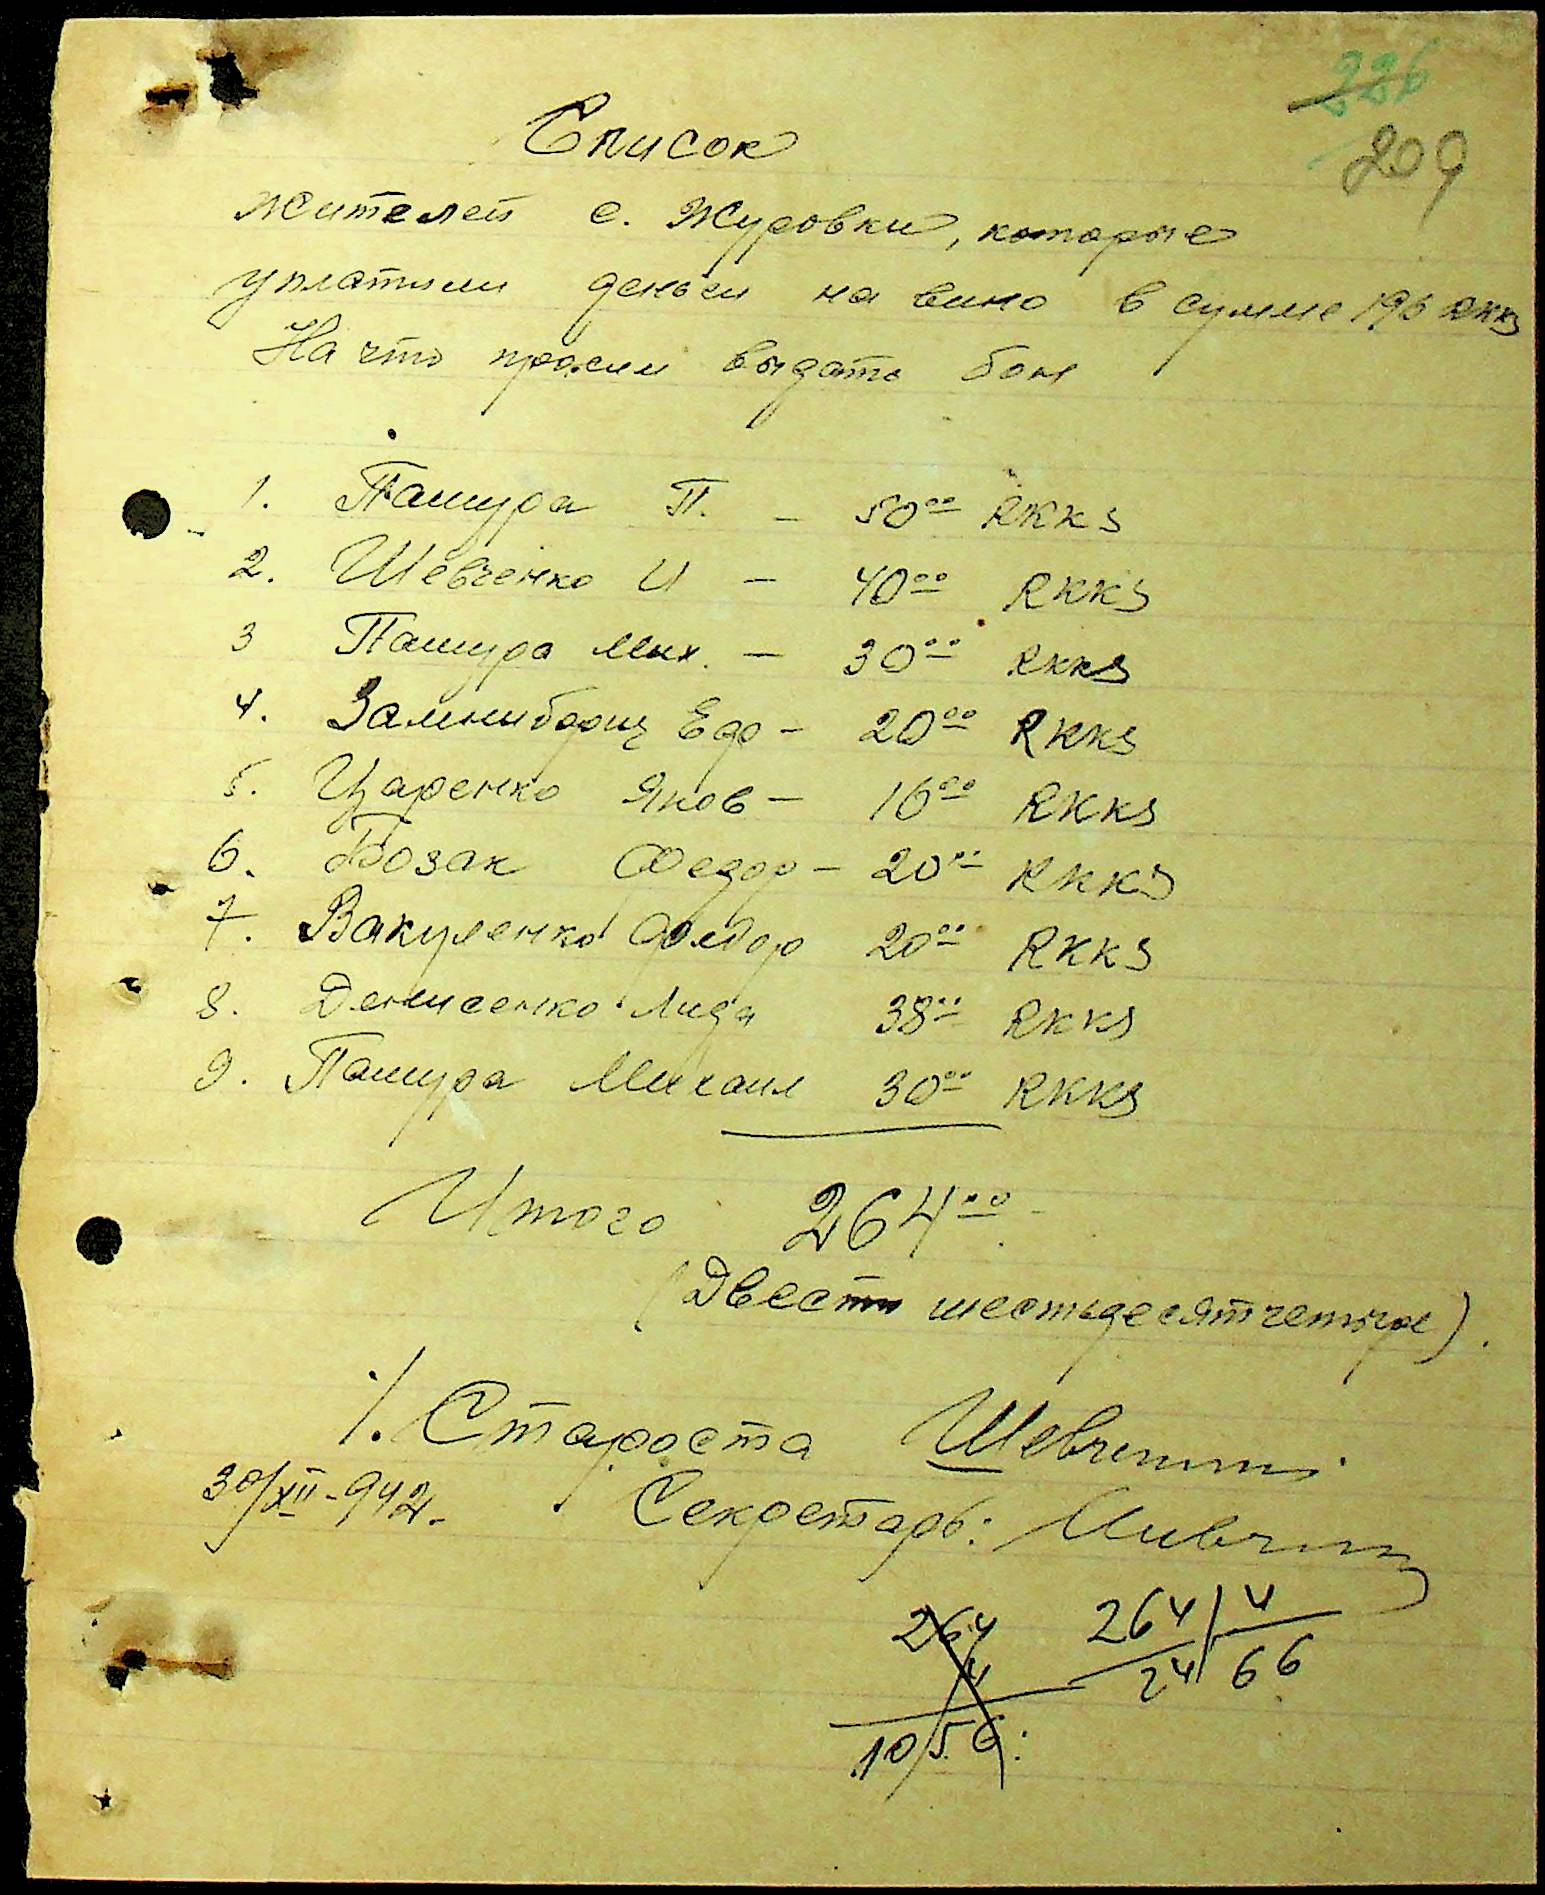 226
209
Список
жителей с. Журовки, которые
уплатили деньги на вино в сумме 196 RKKS
На что просим выдать бон
1. Пашура П. – 50⁰⁰ RKKS
2. Шевченко И – 40⁰⁰ RKKS
3 Пашура Мих. – 30⁰⁰ RKKS
4. Замниборщ Едо – 20⁰⁰ RKKS
5. Царенко Яков – 16⁰⁰ RKKS
6. Бозак Федор – 20⁰⁰ RKKS
7. Вакуленко 20⁰⁰ RKKS
8. Денисенко Лида 38⁰⁰ RKKS
9. Пашура Михаил 30⁰⁰ RKKS
Итого 264⁰⁰
(Двести шестьдесятчетыре).
Староста Шевченко
30/XII-942. Секретарь:
264 264 4
4 24 66
1056